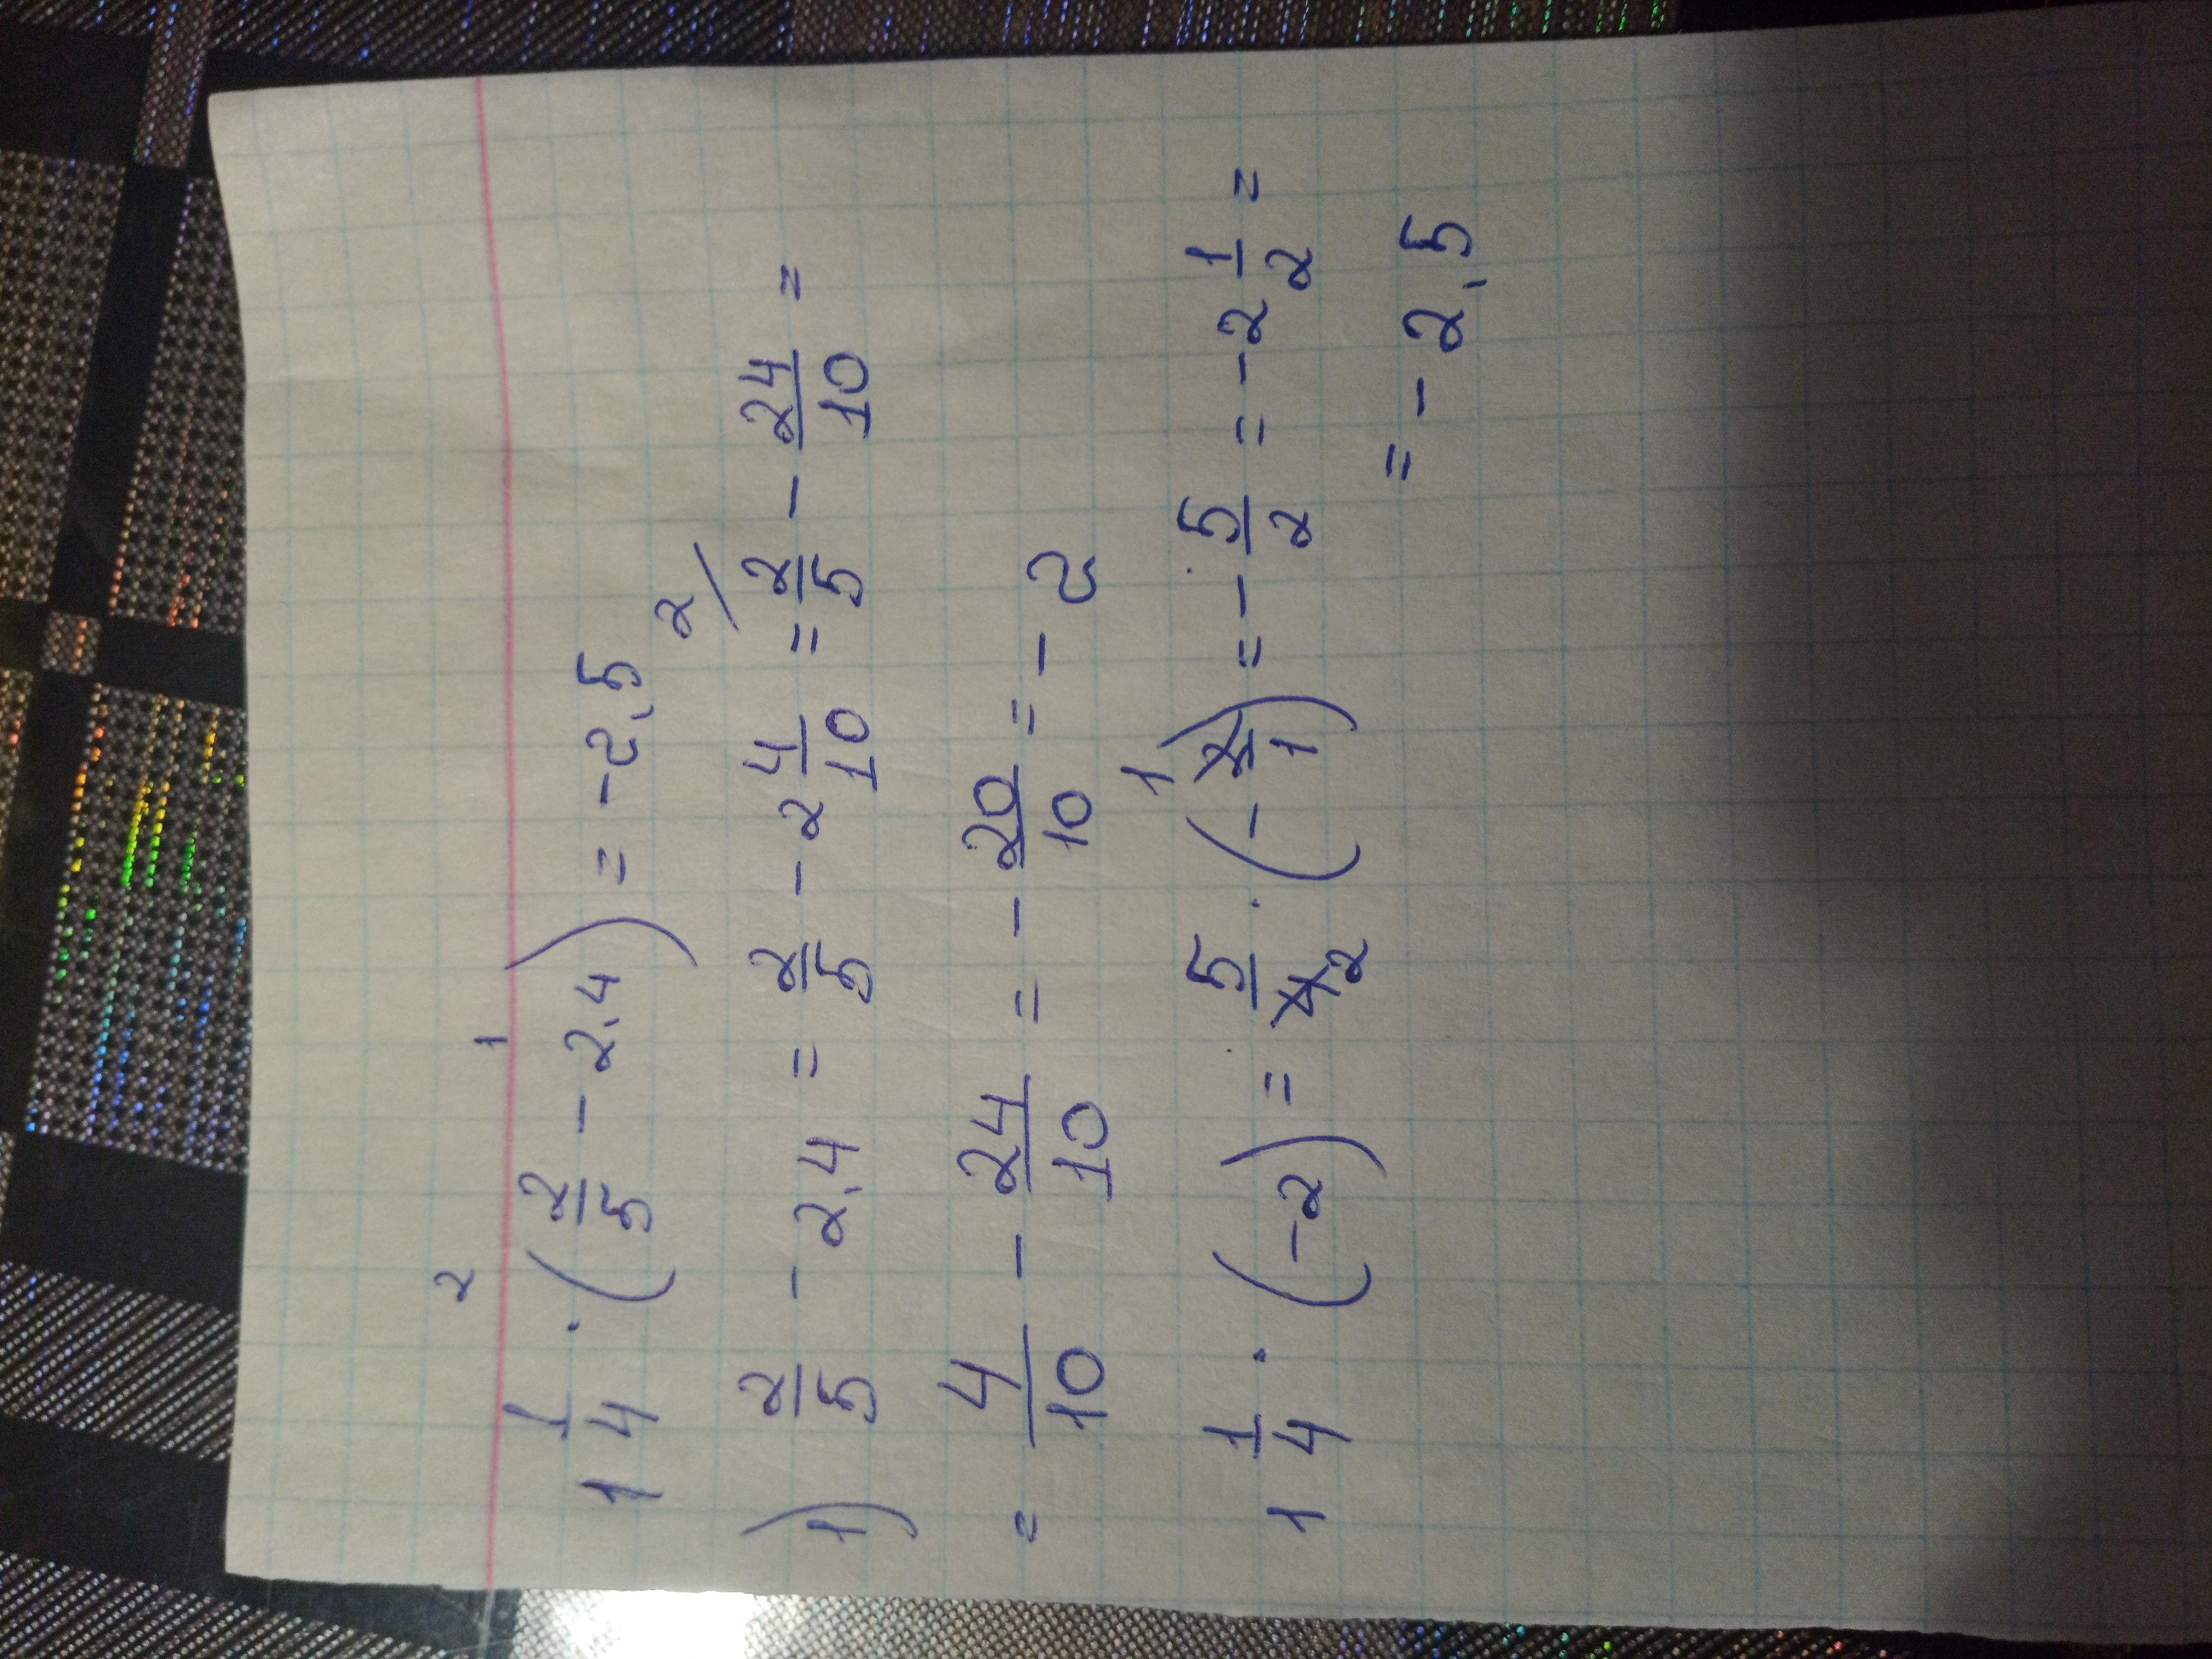 2 1
1 1/4 · (2/5 - 2,4) = -2,5
1) 2/5 - 2,4 = 2/5 - 2 4/10 = 2/ 2/5 - 24/10 =
= 4/10 - 24/10 = - 20/10 = - 2
1 1/4 · (-2) = 5/4 2 · (- 2/1) 1 = - 5/2 = -2 1/2 =
= - 2,5